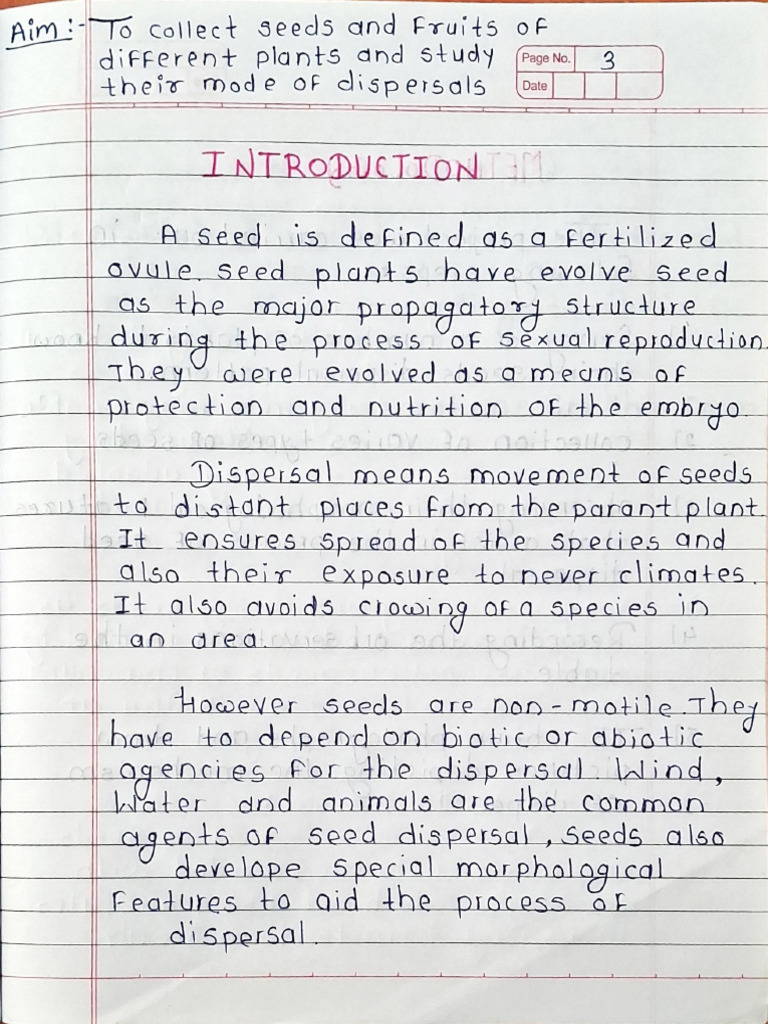 Aim :- To collect seeds and fruits of
different plants and study
their mode of dispersals
Page No. 3
Date
INTRODUCTION
A seed is defined as a fertilized
ovule. seed plants have evolve seed
as the major propagatory structure
during the process of sexual reproduction.
They were evolved as a means of
protection and nutrition of the embryo.
Dispersal means movement of seeds
to distant places from the parant plant.
It ensures spread of the species and
also their exposure to never climates.
It also avoids crowing of a species in
an area.
However seeds are non-motile. They
have to depend on biotic or abiotic
agencies for the dispersal Wind,
Water and animals are the common
agents of seed dispersal, seeds also
develope special morphological
features to aid the process of
dispersal.